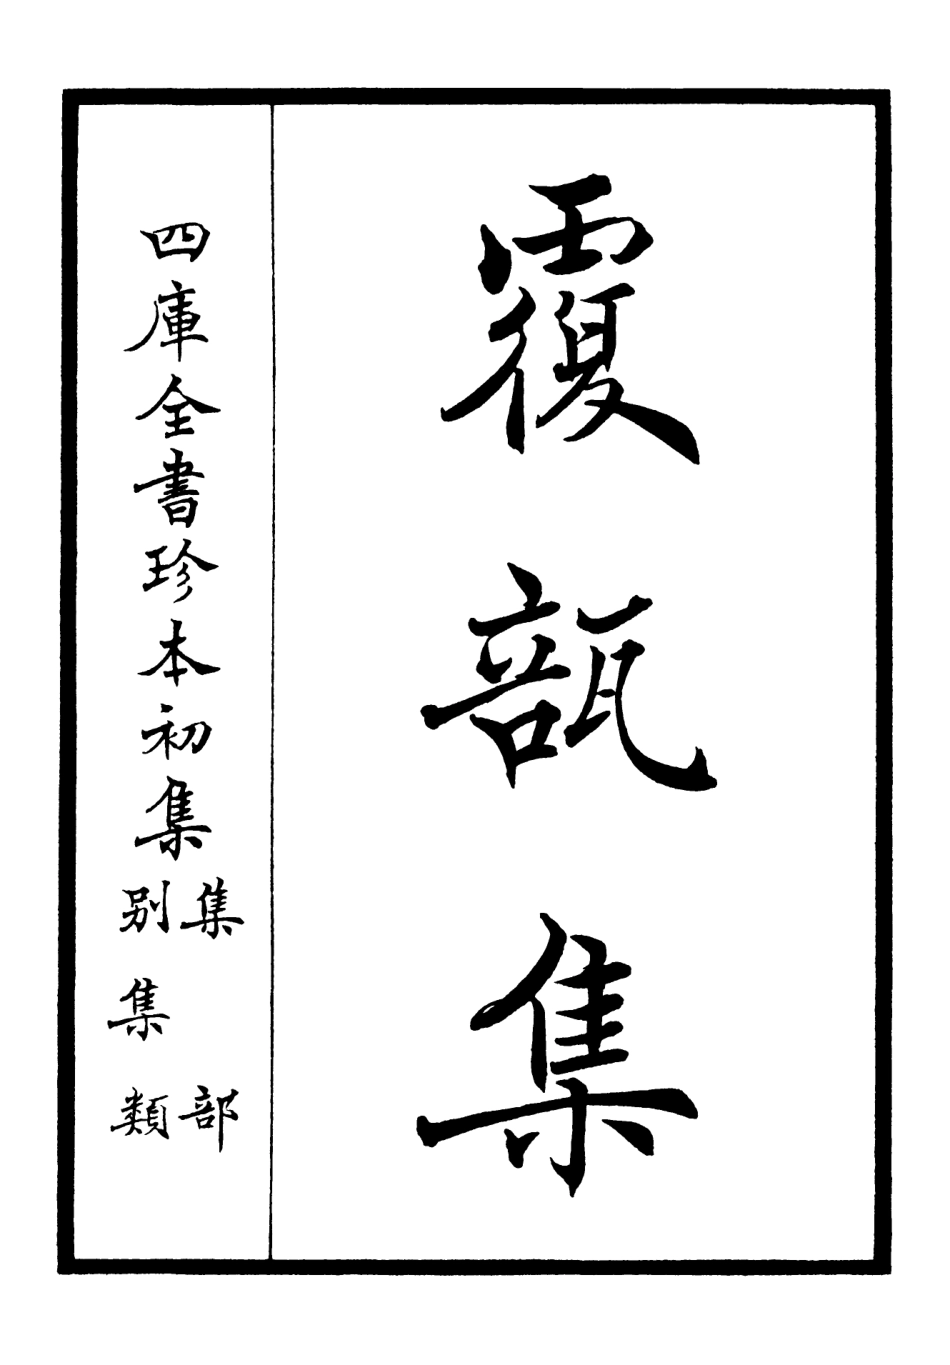 覆瓿集
四庫全書珍本初集
集部
別集類